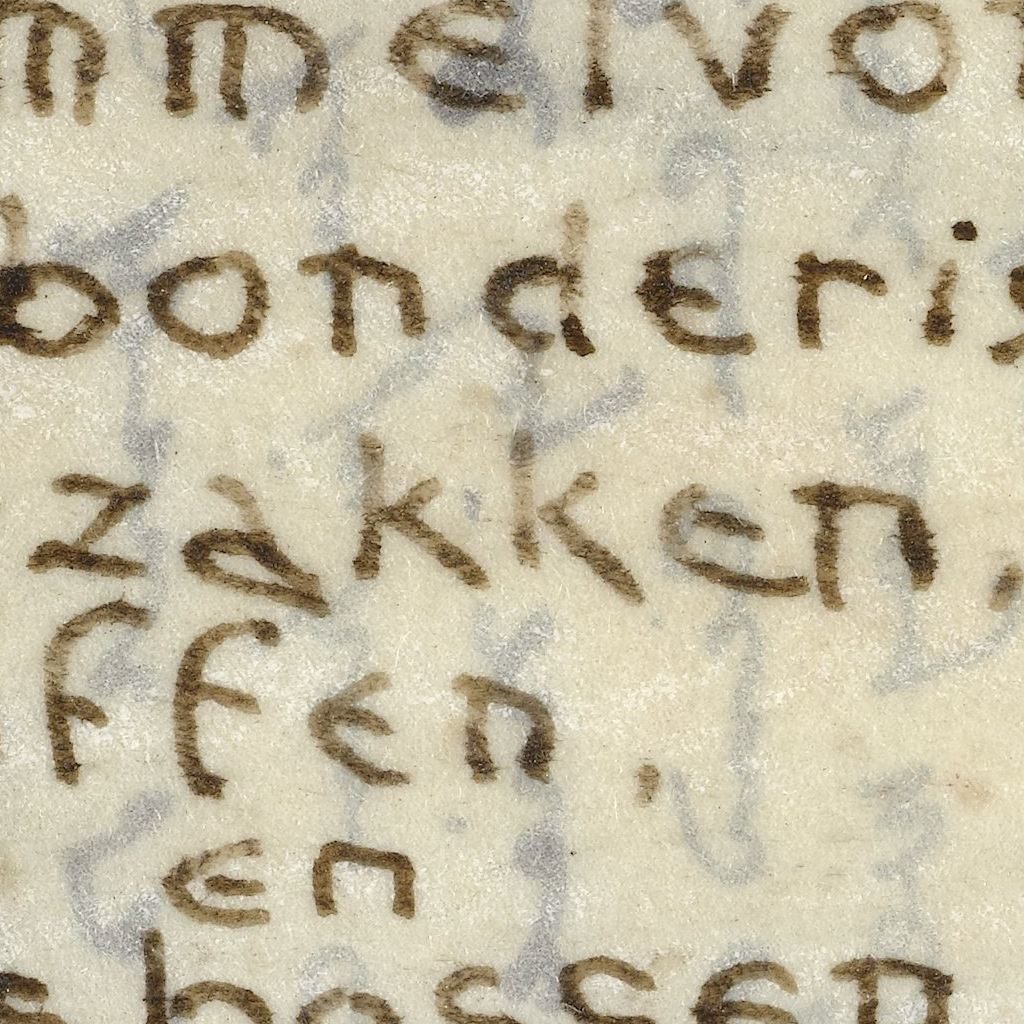 mmelvo
bonderis
zakken,
ffen,
en
s bossen